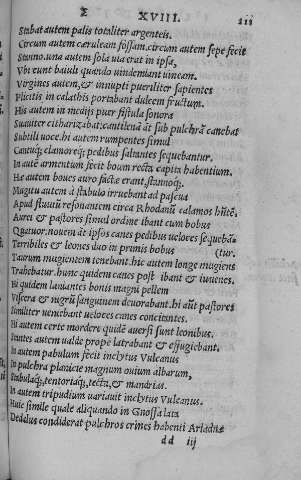 Σ XVIII. 211
Stabat autem palis totaliter argenteis.
Circum autem cæruleam fossam. circum autem sepe fecit
Stanno. una autem sola uia erat in ipsa,
Vbi eunt baiuli quando uindemiant uineam.
Virgines autem, & innupti pueriliter sapientes
Plicitis in calathis portabant dulcem fructum.
His autem in medijs puer fistula sonora
Suauiter citharizabat: cantilenã aũt sub pulchrã canebat
Subtili uoce. hi autem rumpentes simul
Cantuq; clamoreq; pedibus saltantes sequebantur.
In autẽ armentum fecit boum recta capita habentium.
Hæ autem boues auro factæ erant, stannoq;
Mugitu autem à stabulo irruebant ad pascua
Apud fluuiũ resonantem circa Rhodanũ calamos hñtẽ.
Aurei & pastores simul ordine ibant cum bobus
Quatuor. nouem aũt ipsos canes pedibus ueloces sequebã-
Terribiles & leones duo in primis bobus (tur.
Taurum mugientem tenebant. hic autem longe mugiens
Trahebatur. hunc quidem canes post ibant & iuuenes.
Hi quidem laniantes bouis magni pellem
Viscera & nigrũ sanguinem deuorabant. hi aũt pastores
Similiter urgebant ueloces canes concitantes.
Hi autem certe mordere quidẽ auersi sunt leonibus.
Stantes autem ualde prope latrabant & effugiebant.
In autem pabulum fecit inclytus Vulcanus
In pulchra planicie magnum ouium albarum,
Stabulaq;, tentoriaq;, tecta, & mandrias.
In autem tripudium uariauit inclytus Vulcanus.
Huic simile quale aliquando in Gnossa lata
Dedalus condiderat pulchros crines habenti Ariadnæ
dd iij